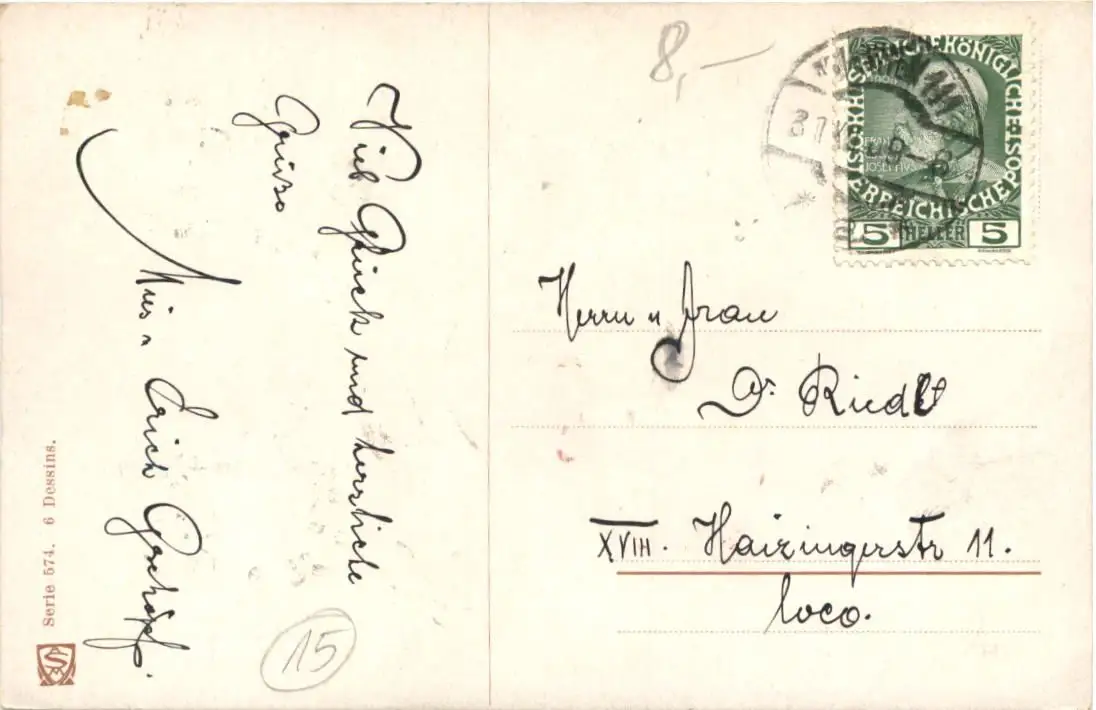 8,—
KAISERLICHE KÖNIGLICHE
ÖSTERREICHISCHE POST
FRANZ
JOSEF
5 HELLER 5
Viele Glück und herzliche
Grüße
Erich
Herrn u Frau
Dr. Riedl
XVIII. Haizingerstr 11.
loco.
15
Serie 574. 6 Dessins.